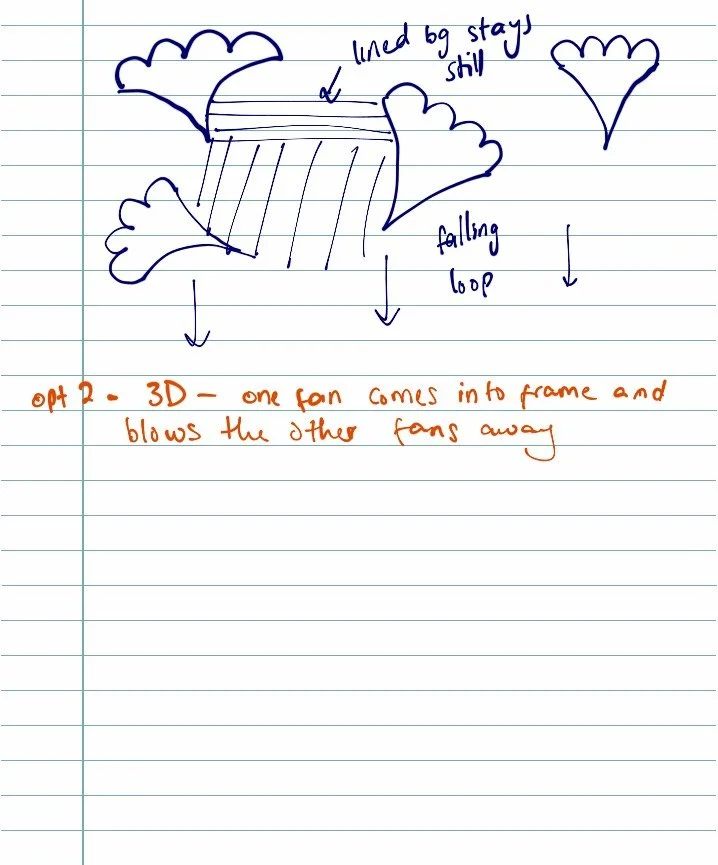 lined bg stays
still
falling
loop
opt 2 - 3D - one fan comes into frame and
blows the other fans away